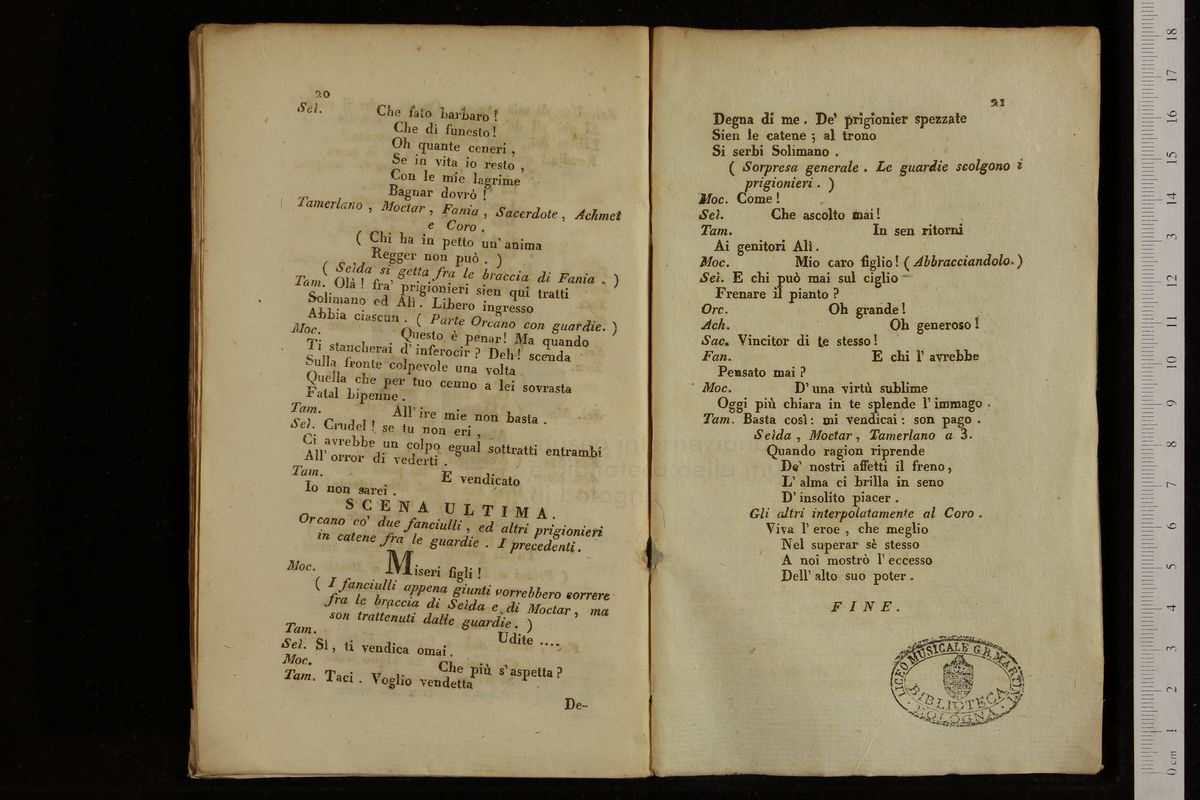 20
Seì. Che fato barbaro !
Che dì funesto!
Oh quante ceneri ,
Se in vita io resto ,
Con le mie lagrime
Bagnar dovrò !
Tamerlano , Moctar , Fania , Sacerdote , Achmet
e Coro .
( Chi ha in petto un' anima
Regger non può . )
( Seìda si getta fra le braccia di Fania . )
Tam. Olà ! fra' prigionieri sien qui tratti
Solimano ed Alì . Libero ingresso
Abbia ciascun . ( Parte Orcano con guardie. )
Moc. Questo è penar! Ma quando
Ti stancherai d' inferocir ? Deh! scenda
Sulla fronte colpevole una volta
Quella che per tuo cenno a lei sovrasta
Fatal bipenne .
Tam. All' ire mie non basta .
Seì. Crudel ! se tu non eri ,
Ci avrebbe un colpo egual sottratti entrambi
All' orror di vederti .
Tam. E vendicato
Io non sarei .
SCENA ULTIMA.
Orcano co' due fanciulli , ed altri prigionieri
in catene fra le guardie . I precedenti .
Moc. Miseri figli !
( I fanciulli appena giunti vorrebbero correre
fra le braccia di Seìda e di Moctar , ma
son trattenuti dalle guardie . )
Tam. Udite ....
Seì. Sì , ti vendica omai .
Moc. Che più s' aspetta ?
Tam. Taci . Voglio vendetta
De-
21
Degna di me . De' prigionier spezzate
Sien le catene ; al trono
Si serbi Solimano .
( Sorpresa generale . Le guardie scolgono i
prigionieri . )
Moc. Come !
Seì. Che ascolto mai !
Tam. In sen ritorni
Ai genitori Alì .
Moc. Mio caro figlio ! ( Abbracciandolo. )
Seì. E chi può mai sul ciglio
Frenare il pianto ?
Orc. Oh grande !
Ach. Oh generoso !
Sac. Vincitor di te stesso !
Fan. E chi l' avrebbe
Pensato mai ?
Moc. D' una virtù sublime
Oggi più chiara in te splende l' immago .
Tam. Basta così : mi vendicai : son pago .
Seìda , Moctar , Tamerlano a 3.
Quando ragion riprende
De' nostri affetti il freno ,
L' alma ci brilla in seno
D' insolito piacer .
Gli altri interpolatamente al Coro .
Viva l' eroe , che meglio
Nel superar sè stesso
A noi mostrò l' eccesso
Dell' alto suo poter .
FINE.
LICEO MUSICALE G.B. MARTINI
BIBLIOTECA
BOLOGNA
museo internazionale
e biblioteca della musica
di bologna
0 cm 1 2 3 4 5 6 7 8 9 10 11 12 13 14 15 16 17 18